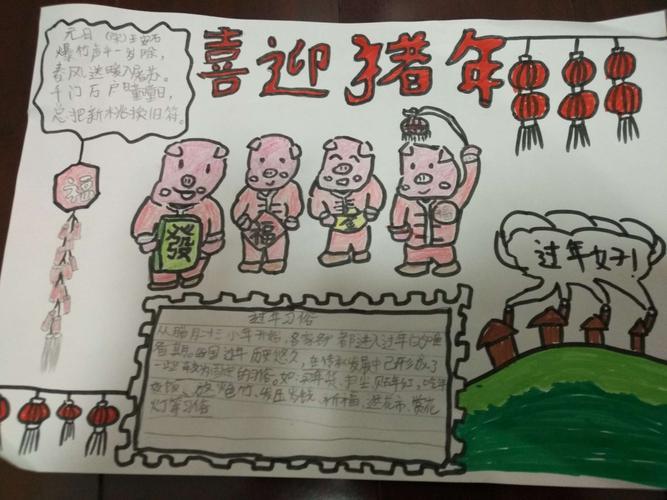 喜迎猪年
元日 (宋)王安石
爆竹声中一岁除,
春风送暖入屠苏。
千门万户曈曈日,
总把新桃换旧符。
福
發
福
过年好!
过年习俗
从腊月二十三小年开始,
都进入过年的准
备期。我国过年历史悠久,在传承发展中已形成了
一些较为固定的习俗。如:买年货、扫尘、贴年红、吃年
夜饭、放炮竹、发压岁钱、祈福、逛花市、赏花
灯等习俗